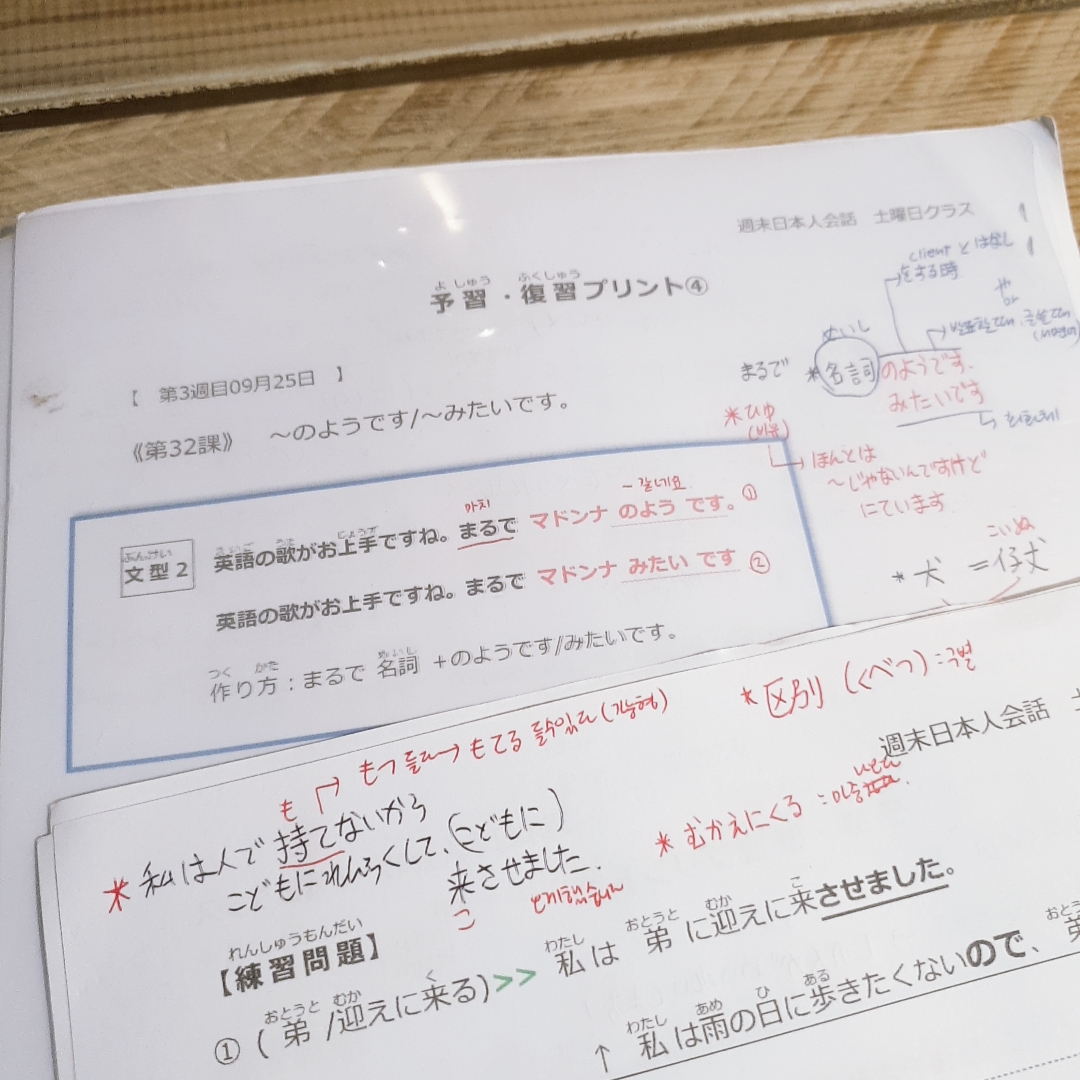 週末日本人会話 土曜日クラス
予習・復習プリント④
よ しゅう ふくしゅう
【 第3週目09月25日 】
《第32課》 ～のようです/～みたいです。
client とはなし
をする時
or
めいし
まるで *名詞のようです.
みたいです
*ひゆ
(비유)
ほんとは
～じゃないんですけど
にています
こいぬ
*犬 =仔犬
마치 ~같네요
文型2 英語の歌がお上手ですね。まるで マドンナ のよう です。①
英語の歌がお上手ですね。まるで マドンナ みたい です ②
つく かた めいし
作り方：まるで 名詞 +のようです/みたいです。
*区別 (くべつ) : 구별
週末日本人会話
も もつ 들다→もてる 들수있다(가능형)
*私は人で持てないから
こどもにれんらくして、(こどもに)
来させました.
こ
*むかえにくる :마중
れんしゅうもんだい
【練習問題】
おとうと むか く
①(弟/迎えに来る)>>
わたし おとうと むか こ
私は 弟 に迎えに来させました。
わたし あめ ひ ある
↑ 私は雨の日に歩きたくないので、